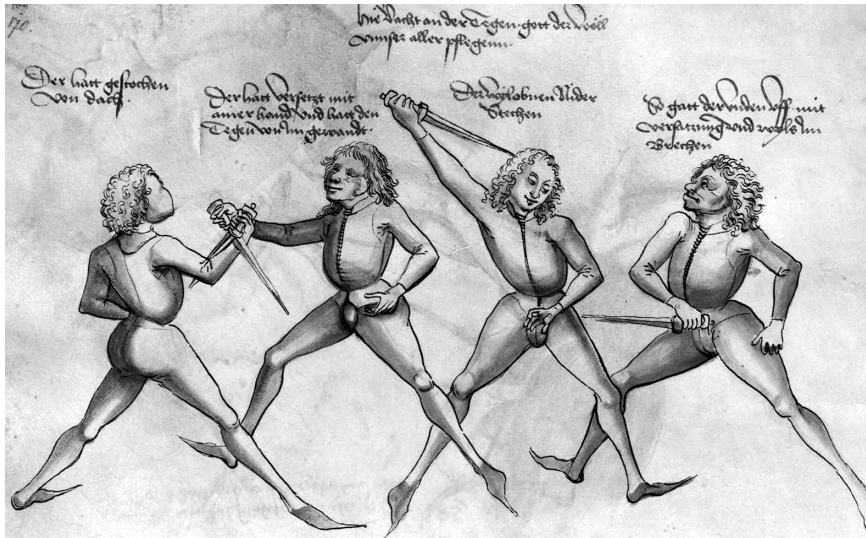 170.
Hie Vacht an der Tegen. gott der wöll
vnnser aller pflegenn.
Der hatt gestochen
von dach.
Der hatt versetzt mit
ainer hand vnd hatt den
Tegen von Im gewandt.
Der wyl obnen Nider
Stechen
So gatt der vnden vff mit
versatzung vnd wyls Im
Brechen